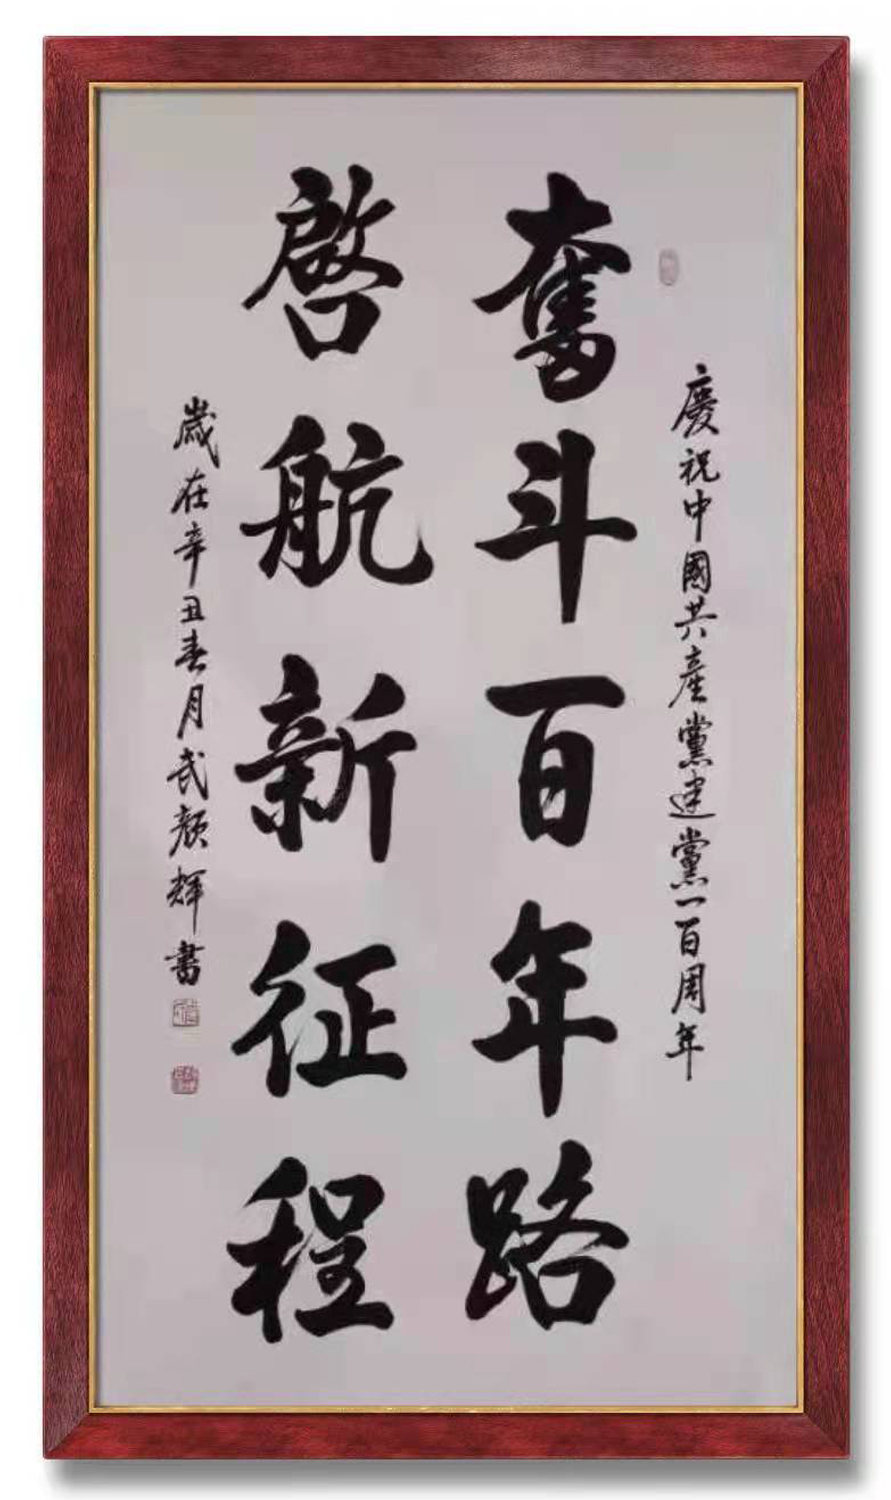 慶祝中國共產黨建黨一百周年
奮斗百年路
啓航新征程
歳在辛丑春月武颜輝書